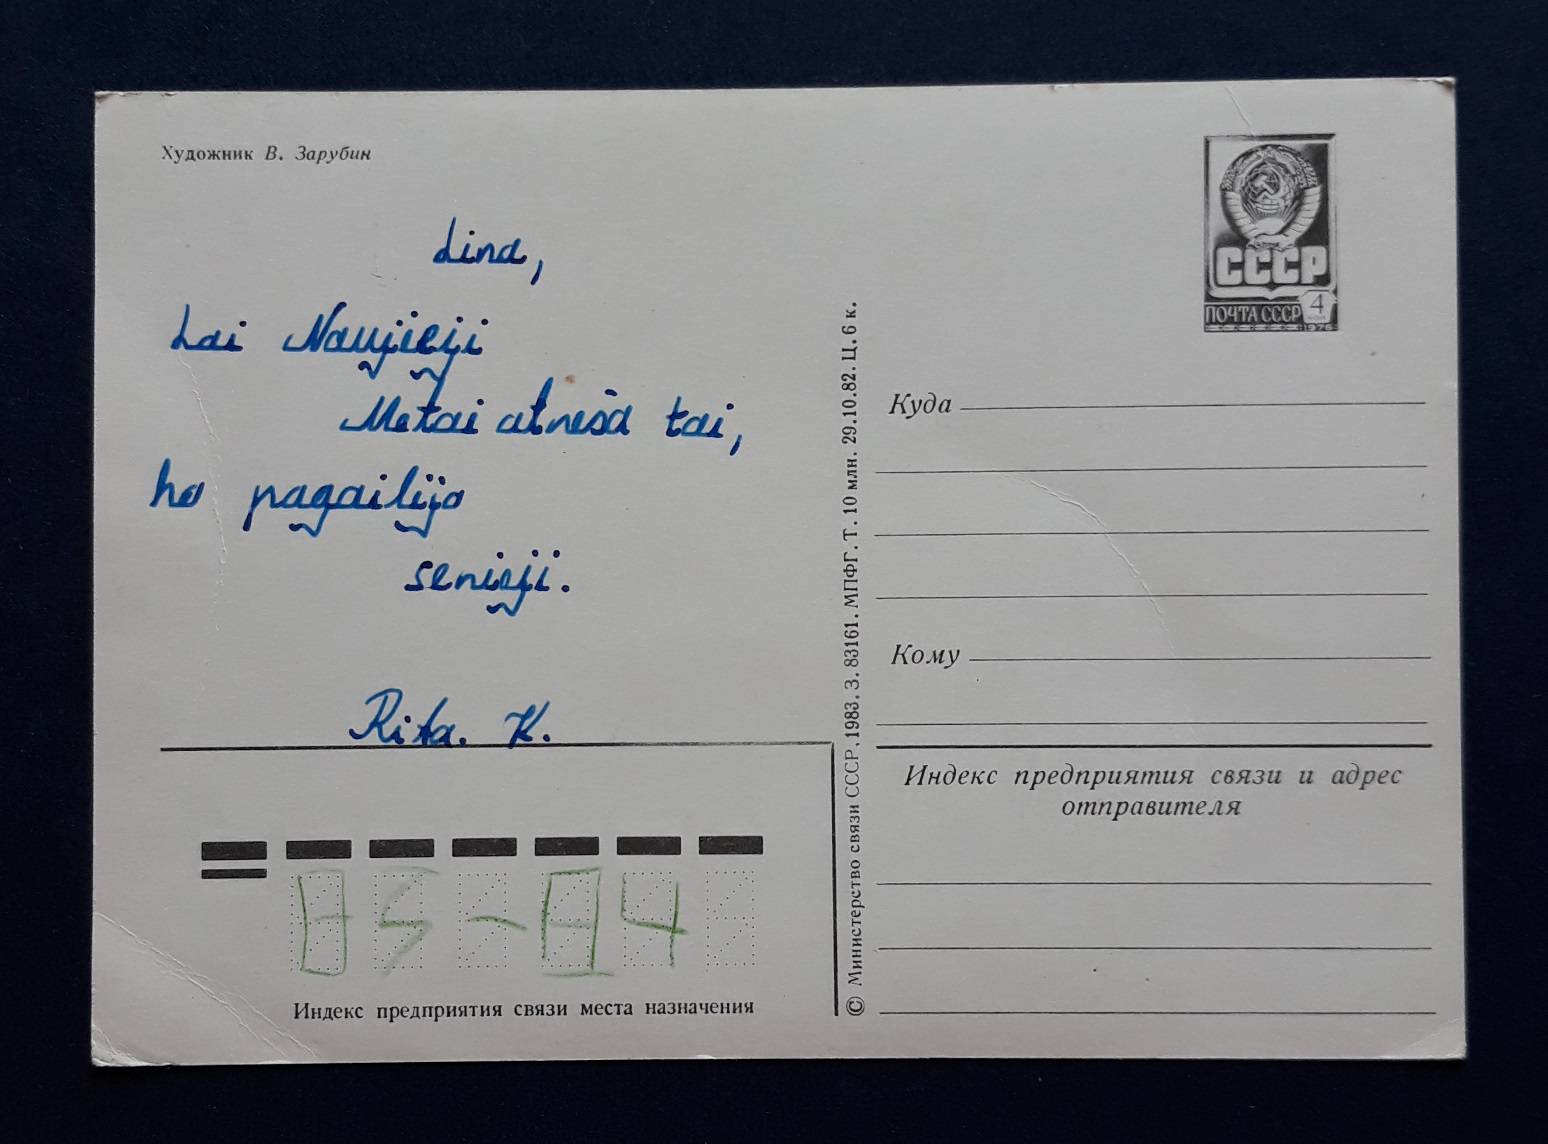 Художник В. Зарубин
Lina,
Lai Naujieji
Metai atneša tai,
ko pagailėjo
senieji.
Rita. K.
Индекс предприятия связи места назначения
© Министерство связи СССР. 1983. З. 83161. МПФГ. Т. 10 млн. 29.10.82. Ц. 6 к.
СССР
ПОЧТА СССР 4
1976
Куда
Кому
Индекс предприятия связи и адрес
отправителя